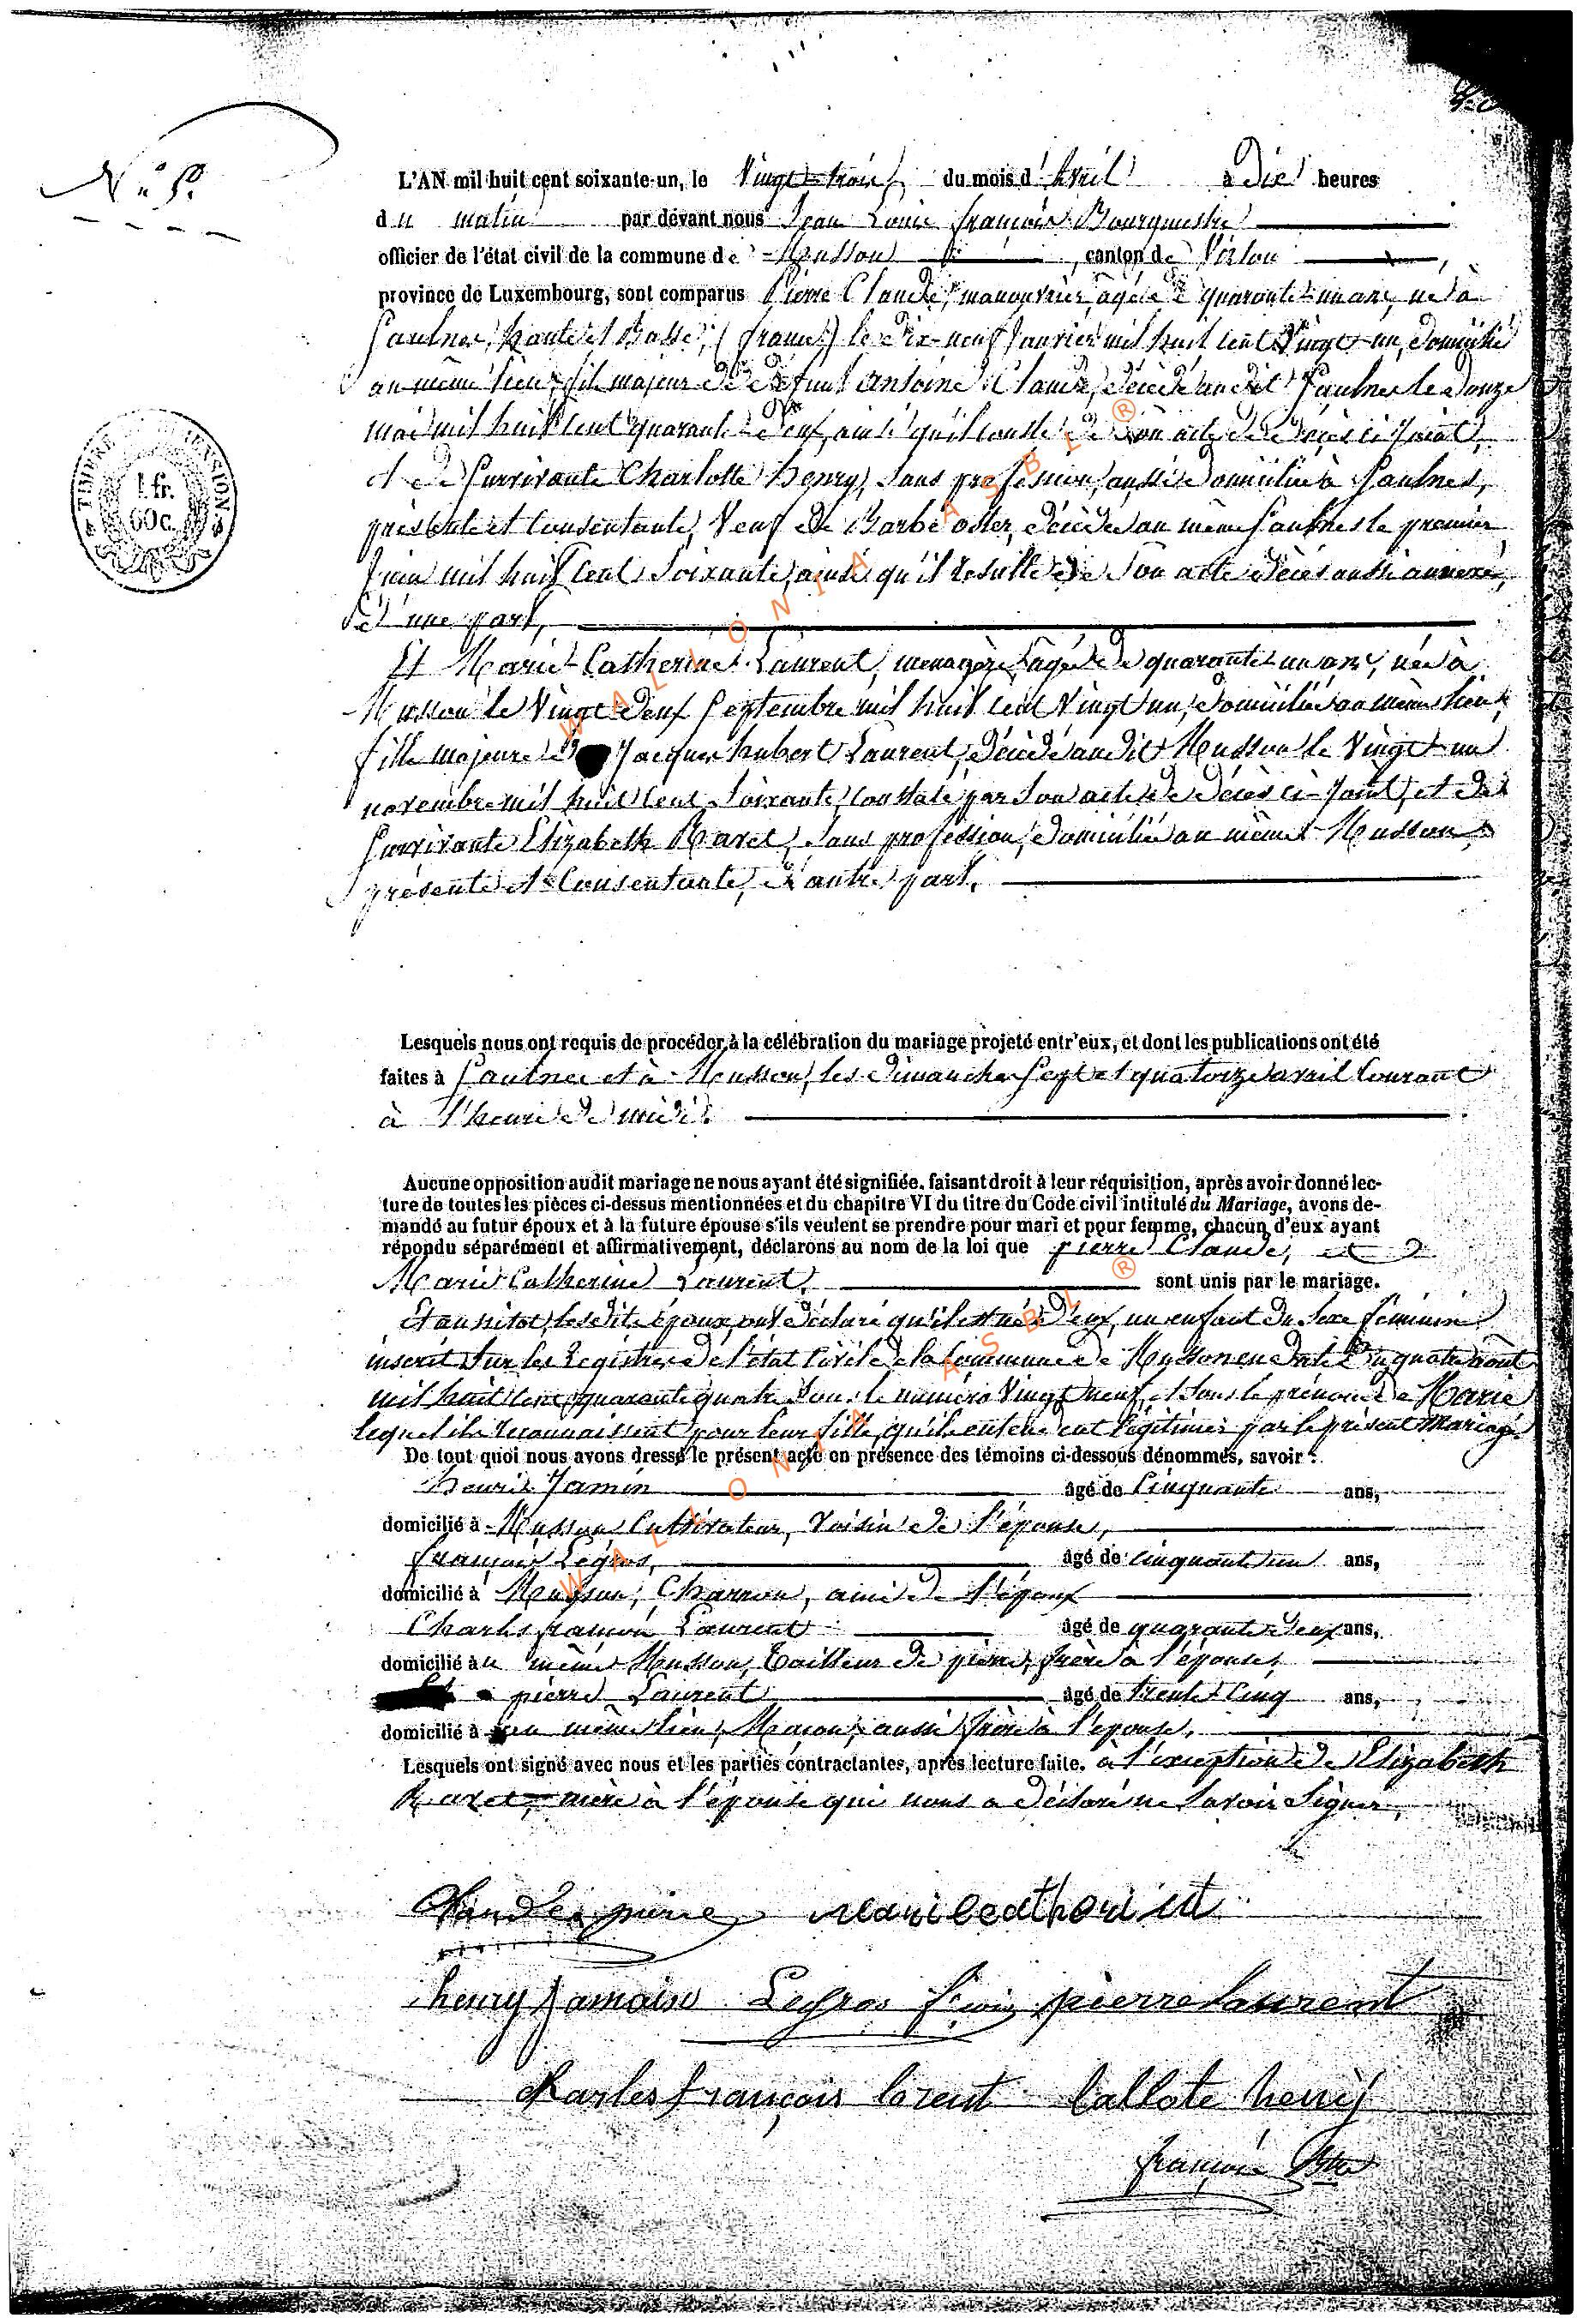 N.° 5.
L'AN mil huit cent soixante-un, le Vingt-trois du mois d'Avril à Dix heures
du matin par devant nous Jean Louis françois Bourgmestre
officier de l'état civil de la commune de Musson, canton de Virton,
province de Luxembourg, sont comparus Pierre Claude, manouvrier, âgé de quarante-un ans, né à
Saulnes, haute et Basse, (france) le dix-neuf Janvier mil huit cent Vingt-un, domicilié
au même lieu, fils majeur de défunt Antoine Claude, décédé audit Saulnes le Douze
mai mil huit cent quarante-neuf, ainsi qu'il conste de son acte de décès ci-joint,
et de Survivante Charlotte henry, sans profession, aussi domiciliée à Saulnes,
présente et consentante, Veuf de Barbe oster, décédée au même Saulnes le premier
Juin mil huit cent Soixante, ainsi qu'il résulte de son acte décès aussi annexé,
d'une part,
Et Marie-Catherine Laurent, menagère, âgée de quarante-un ans, née à
Musson le Vingt-deux Septembre mil huit cent Vingt un, domiciliée au même lieu,
fille majeure de Jacques hubert Laurent, décédé audit Musson le Vingt-un
novembre mil huit cent Soixante, constaté par son acte de décès ci-joint, et de
Survivante Elizabeth Maret, sans profession, domiciliée au même Musson,
présente et Consentante, d'autre part.
TIMBRE DE DIMENSION
1 fr.
60 c.
Lesquels nous ont requis de procéder à la célébration du mariage projeté entr'eux, et dont les publications ont été
faites à Saulnes et à Musson, les dimanches Sept et quatorze avril Courant
à l'heure de midi.
Aucune opposition audit mariage ne nous ayant été signifiée, faisant droit à leur réquisition, après avoir donné lec-
ture de toutes les pièces ci-dessus mentionnées et du chapitre VI du titre du Code civil intitulé du Mariage, avons de-
mandé au futur époux et à la future épouse s'ils veulent se prendre pour mari et pour femme, chacun d'eux ayant
répondu séparément et affirmativement, déclarons au nom de la loi que pierre Claude, et
Marie Catherine Laurent, sont unis par le mariage.
Et aussitot, lesdits époux, ont déclaré qu'il est né d'eux, un enfant du Sexe féminin
inscrit sur les Registres de l'état Civil de la Commune de Musson en date du quatre août
mil huit cent quarante quatre sous le numéro Vingt neuf, et sous le prénom de Marie
lequel ils reconnaissent pour leur fille, qu'ils entendent légitimer par le présent Mariage.
De tout quoi nous avons dressé le présent acte en présence des témoins ci-dessous dénommés, savoir :
henri Jamin âgé de Cinquante ans,
domicilié à Musson Cultivateur, Voisin de l'épouse,
françois Légros, âgé de cinquante un ans,
domicilié à Musson, Charron, ami de l'époux
Charles françois Laurent âgé de quarante-deux ans,
domicilié au même Musson, Tailleur de pierre, frère à l'épouse,
pierre Laurent âgé de trente-Cinq ans,
domicilié à au même lieu, Maçon, aussi frère à l'épouse,
Lesquels ont signé avec nous et les parties contractantes, après lecture faite. à l'exception de Elizabeth
Maret, mère à l'épouse qui nous a déclaré ne Savoir Signer,
Claude pierre mariecatherin
henry Jamoise Legros f.çois pierre Laurent
charles françois lorent Callote henry
françois Btre
WALLONIA ASBL ®
WALLONIA ASBL ®